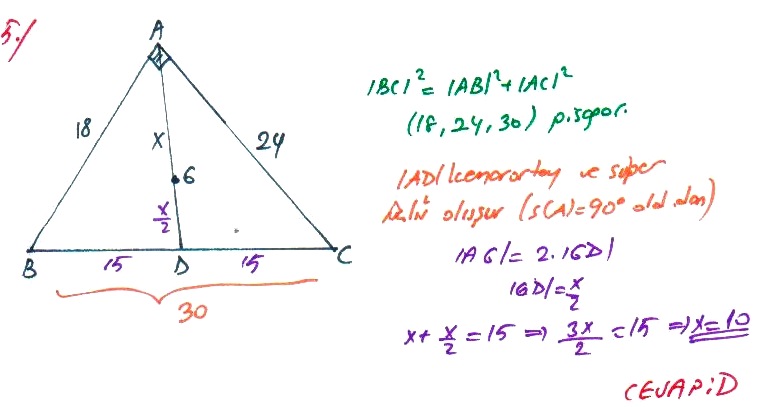 5./
A
18
x
24
6
x/2
B
15
D
15
C
30
|BC|² = |AB|² + |AC|²
(18, 24, 30) pisagor.
|AD| kenarortay ve süper
üçlü oluşur (s(A)=90° old.dan)
|AG| = 2.|GD|
|GD| = x/2
x + x/2 = 15 ⇒ 3x/2 = 15 ⇒ x = 10
CEVAP: D